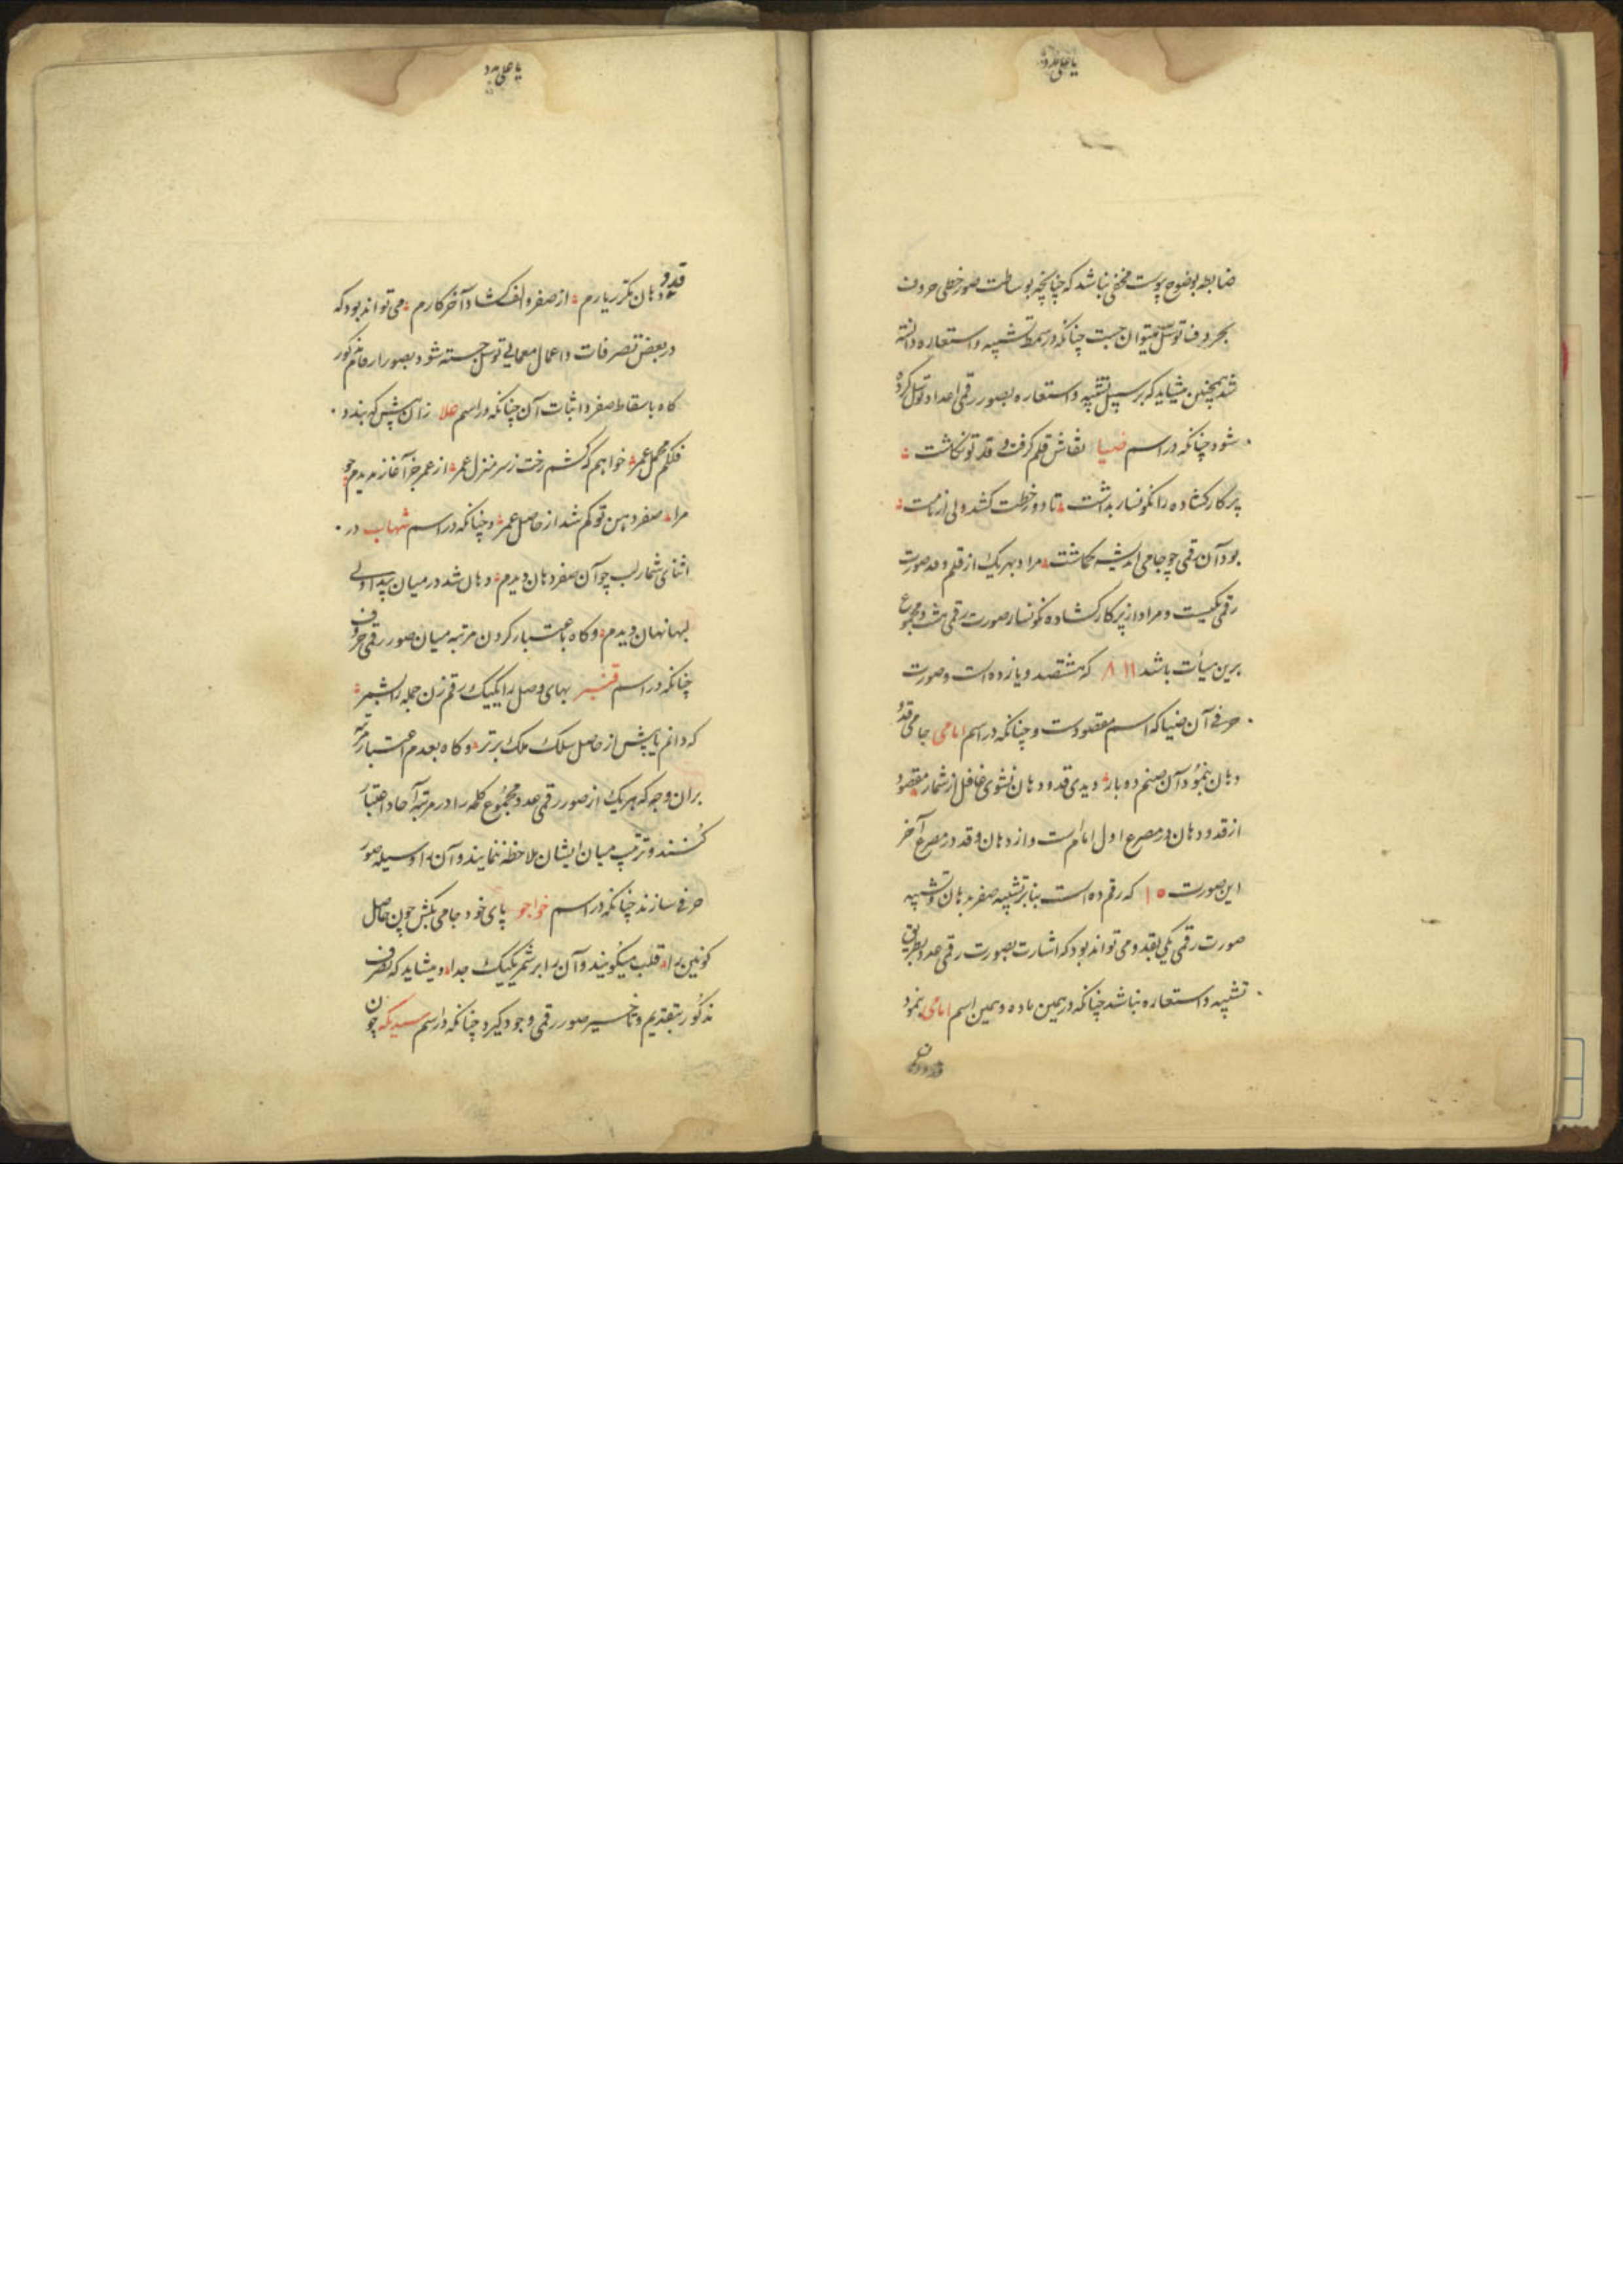 ضابطه بوضوح پیوست مخفی نباشد که چنانچه بوساطت صور خطی حروف
بحروف توسل میتوان جست چنانکه در سمط تشبیه و استعاره دانسته
شد همچنین میشاید که بر سبیل تشبیه و استعاره بصور رقمی اعداد توسل کرده
شود چنانکه در اسم ضیا نقاش قلم گرفت و قد تو نگاشت
پرکار کشاده را نگونسار بداشت تا دور خطت کشد ولی
بود آن رقمی چو جامی اندیشه گماشت مراد بهر یک از قلم و قد صورت
رقمی یکیست و مراد از پرکار کشاده نگونسار صورت رقمی هشت و مجموع
برین هیأت باشد ۸ ۱۱ که هشتصد و یازده است و صورت
حرفی آن ضیا که اسم مقصودست و چنانکه در اسم امامی جامی قد و
دهان بنمود آن صنم ده بار دیدی قد و دهان نشوی غافل از شمار مقصود
از قد و دهان در مصرع اول ام است و از دهان و قد در مصرع آخر
این صورت ۱۰ که رقم ده است بنابر تشبیه صفر بدهان و تشبیه
صورت رقمی یکی بقد و می تواند بود که اشارت بصورت رقمی عدد بطریق
تشبیه و استعاره نباشد چنانکه در همین ماده و همین اسم امامی بنمود
قد و دهان مکرر یارم از صفر و الف کشاد آخر کارم می تواند بود که
در بعض تصرفات و اعمال معمایی توسل جسته شود بصور ارقام مذکور
گاه باسقاط صفر و اثبات آن چنانکه در اسم علا زان پیش که بندد
فلکم محمل عمر خواهم که کشم رخت ز سر منزل عمر از عمر جز آغاز ندیدم چو
مرا صفر دهن تو کم شد از حاصل عمر و چنانکه در اسم شهاب در
اثنای شمار لب چو آن صفر دهان دیدم دهان شد در میان پیدا ولی
لبها نهان دیدم و گاه باعتبار کردن مرتبه میان صور رقمی حروف
چنانکه در اسم قنبر بهای وصل را یکیک رقم زن جمله را بشمر
که دانم یابیش از حاصل سلک ملک برتر و گاه بعدم اعتبار مرتبه
بران وجه که هر یک از صور رقمی عدد مجموع کلمه را در مرتبه آحاد اعتبار
کنند و ترتیب میان ایشان ملاحظه نمایند و آن را وسیله صور
حرفی سازند چنانکه در اسم خواجو پای خود جامی بکش چون حاصل
کونین را قلب میگویند و آن را بر شمر یکیک جدا و میشاید که تصرف
مذکور بتقدیم و تاخیر صور رقمی وجود گیرد چنانکه در اسم چون